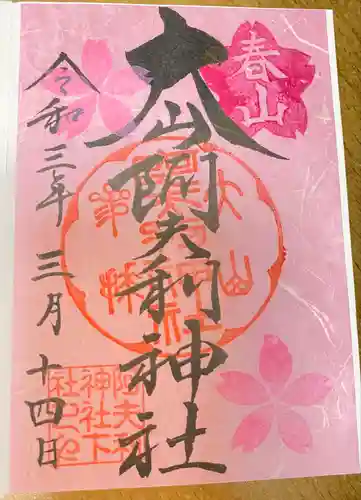 春山
大山阿夫利神社
令和三年三月十四日
阿夫利
神社下
社